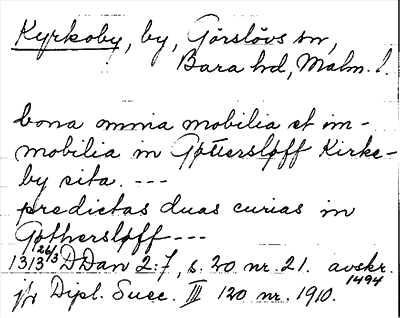 Kyrkoby, by, Görslövs sn,
Bara hd, Malm. l.
bona omnia mobilia et im-
mobilia in Gøtiersløff Kirke-
by sita. ---
predictas duas curias in
Gøthersløff ---
1313 26/3 DDan 2:7, s. 20 nr. 21. avskr. 1494
jfr Dipl. Suec. III 120 nr. 1910.